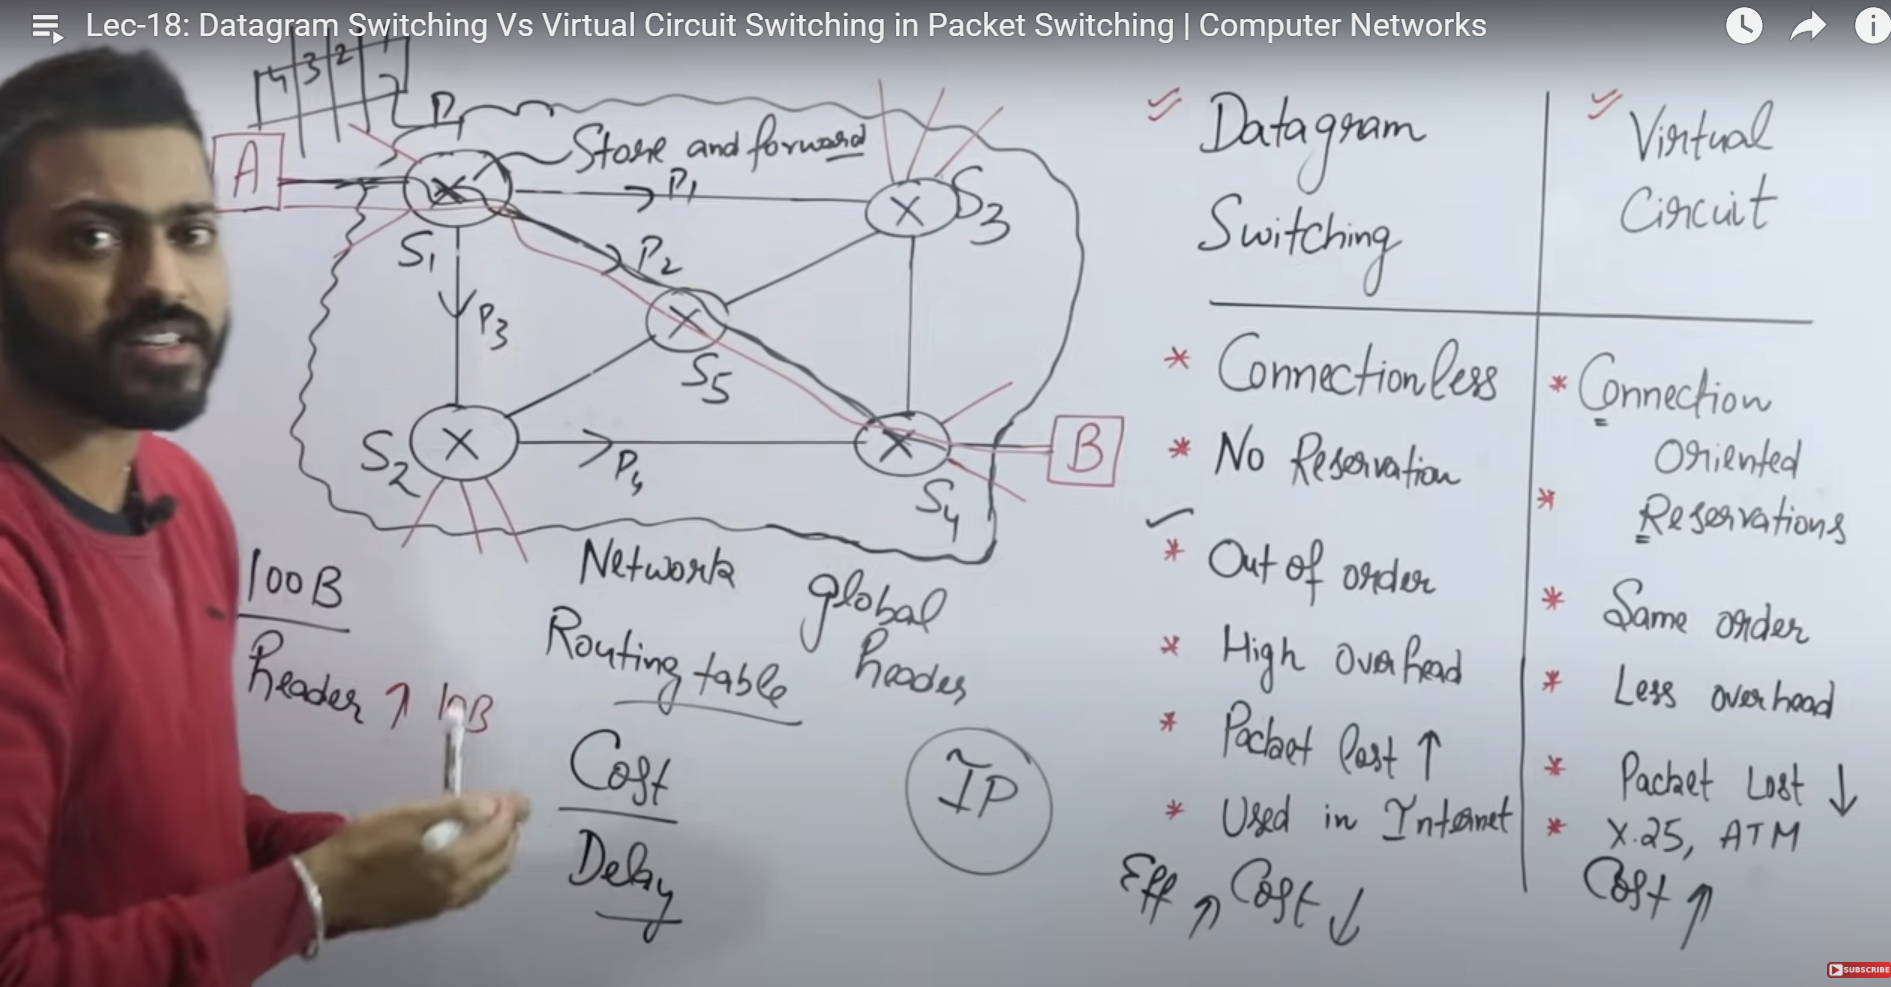 Lec-18: Datagram Switching Vs Virtual Circuit Switching in Packet Switching | Computer Networks
4 3 2 1
A
Store and forward
P1
S1
S3
P2
P3
S5
S2
P4
S4
B
Network
Routing table
global
header
100B
header ↑ 10B
Cost
Delay
IP
Datagram
Switching
* Connectionless
* No Reservation
* Out of order
* High overhead
* Packet lost ↑
* Used in Internet
Eff ↑ Cost ↓
Virtual
Circuit
* Connection
Oriented
* Reservations
* Same order
* Less overhead
* Packet Lost ↓
* X.25, ATM
Cost ↑
SUBSCRIBE